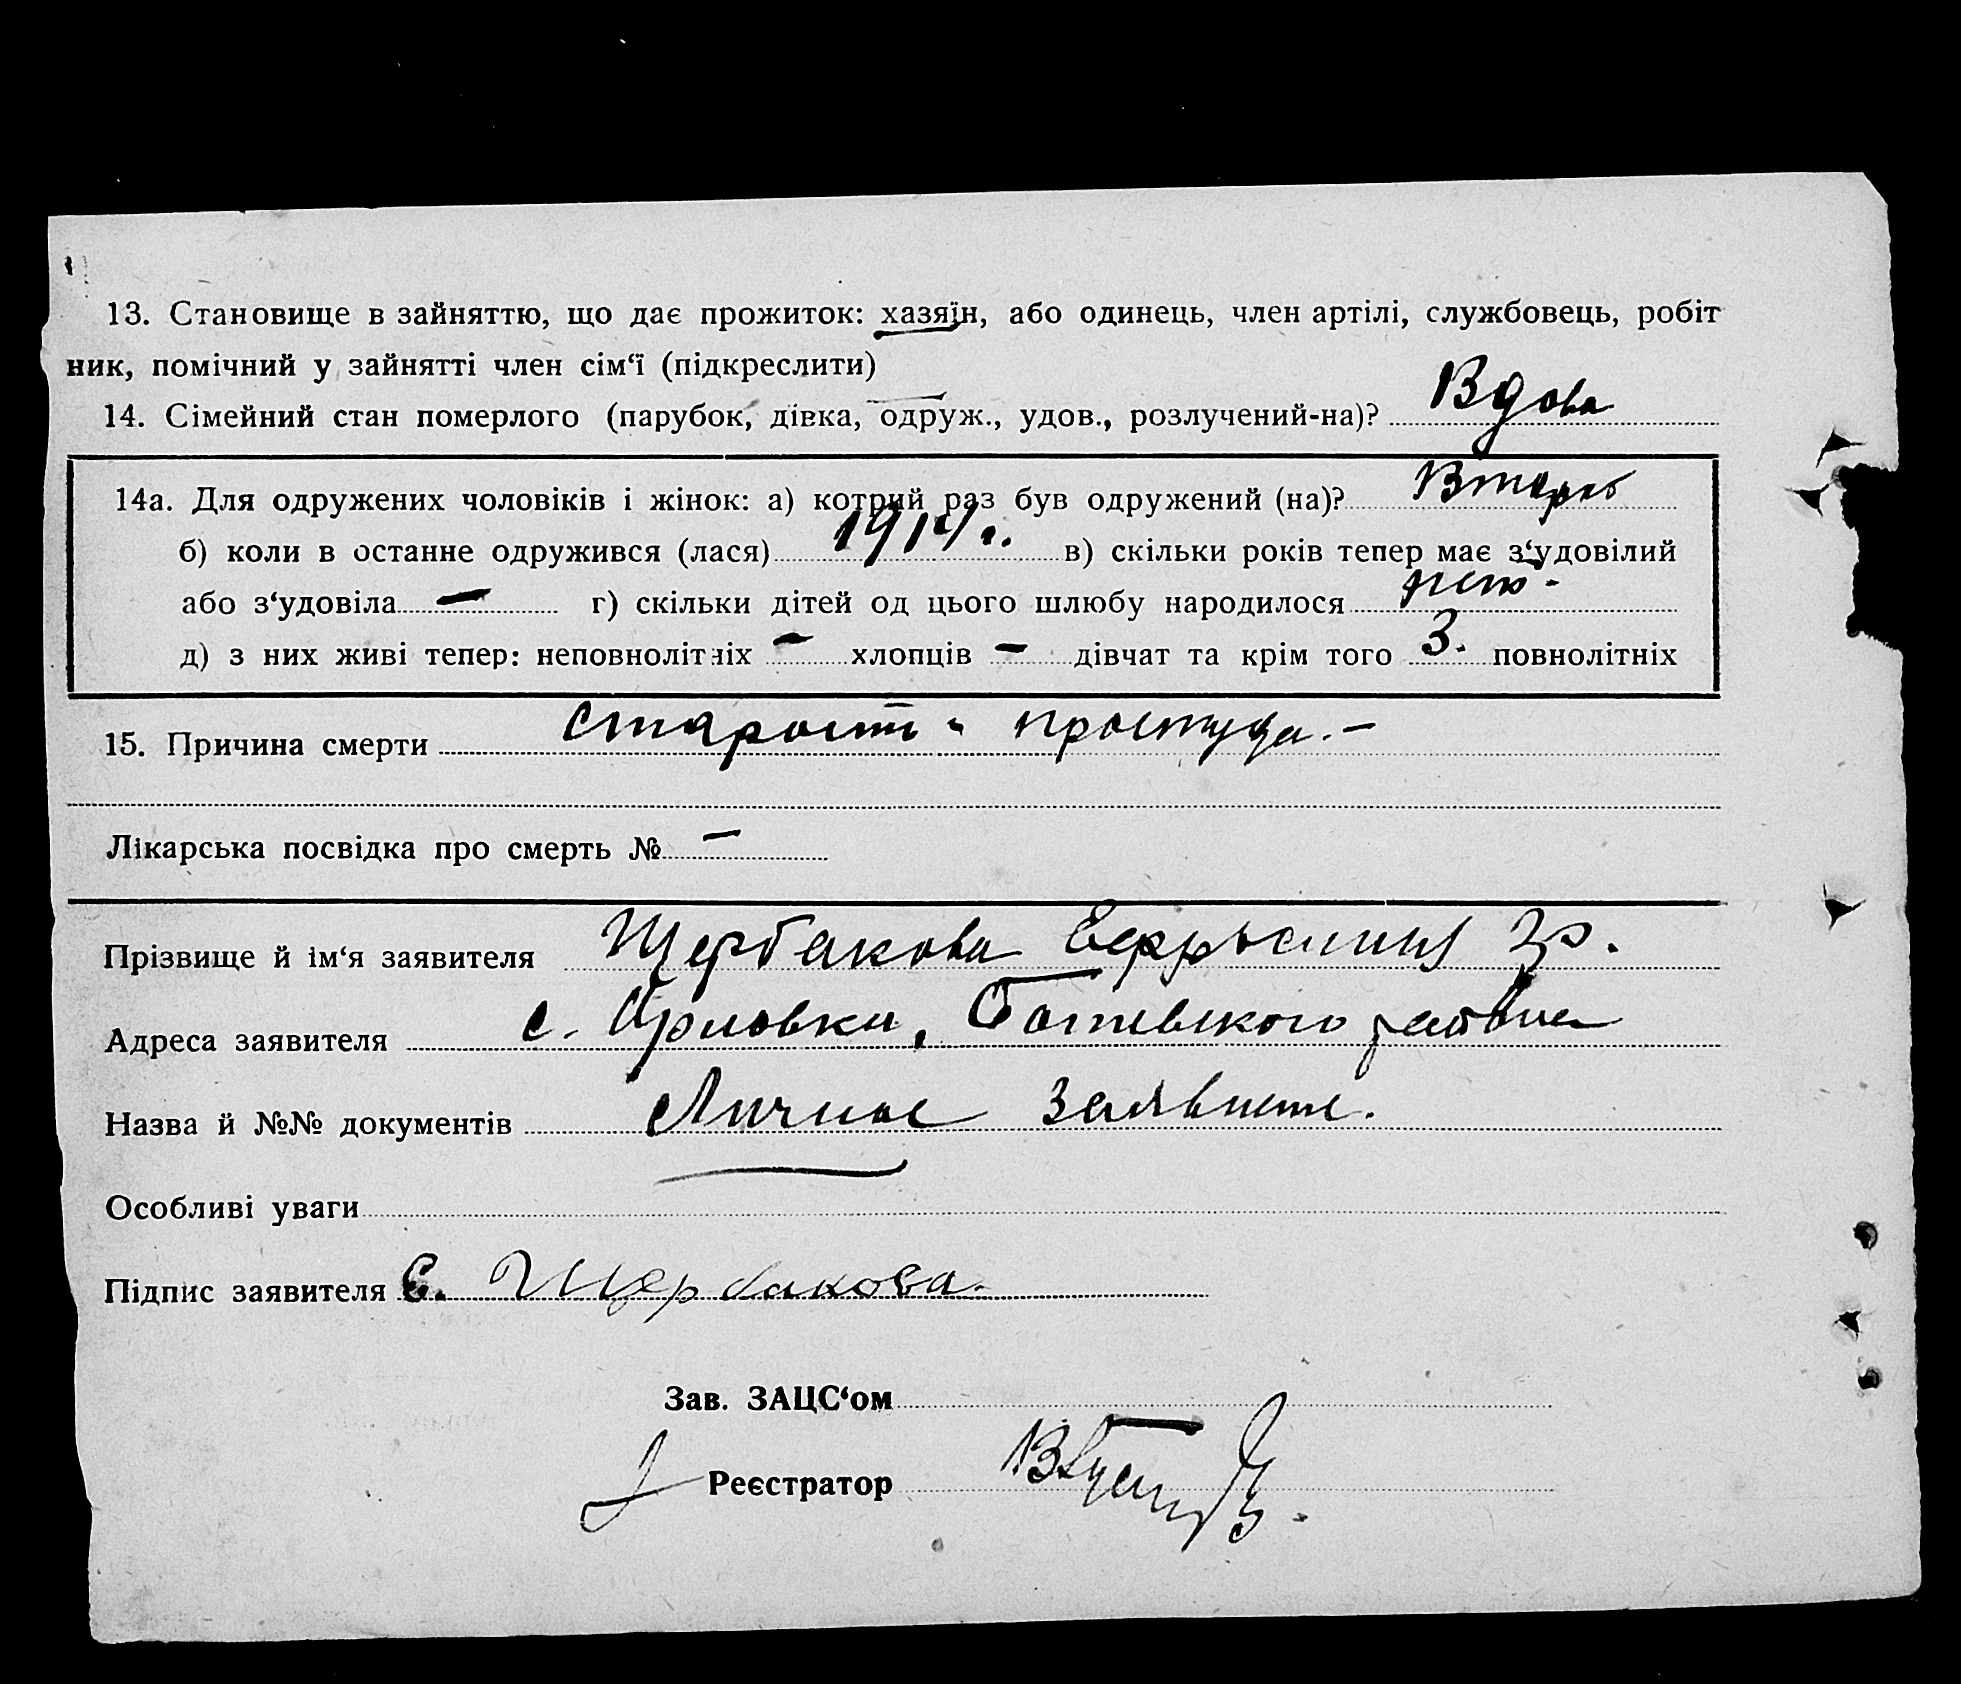 13. Становище в зайняттю, що дає прожиток: хазяїн, або одинець, член артілі, службовець, робіт
ник, помічний у зайнятті член сім‘ї (підкреслити)
14. Сімейний стан померлого (парубок, дівка, одруж., удов., розлучений-на)? Вдова
14а. Для одружених чоловіків і жінок: а) котрий раз був одружений (на)?
б) коли в останне одружився (лася) в) скільки років тепер має з‘удовілий
або з‘удовіла — г) скільки дітей од цього шлюбу народилося
д) з них живі тепер: неповнолітніх — хлопців — дівчат та крім того 3. повнолітніх
15. Причина смерти старость и простуда. —
Лікарська посвідка про смерть № —
Прізвище й ім‘я заявителя Щербакова
Адреса заявителя с. Орловки, района
Назва й №№ документів Личное
Особливі уваги
Підпис заявителя Е. Щербакова.
Зав. ЗАЦС‘ом
Реєстратор